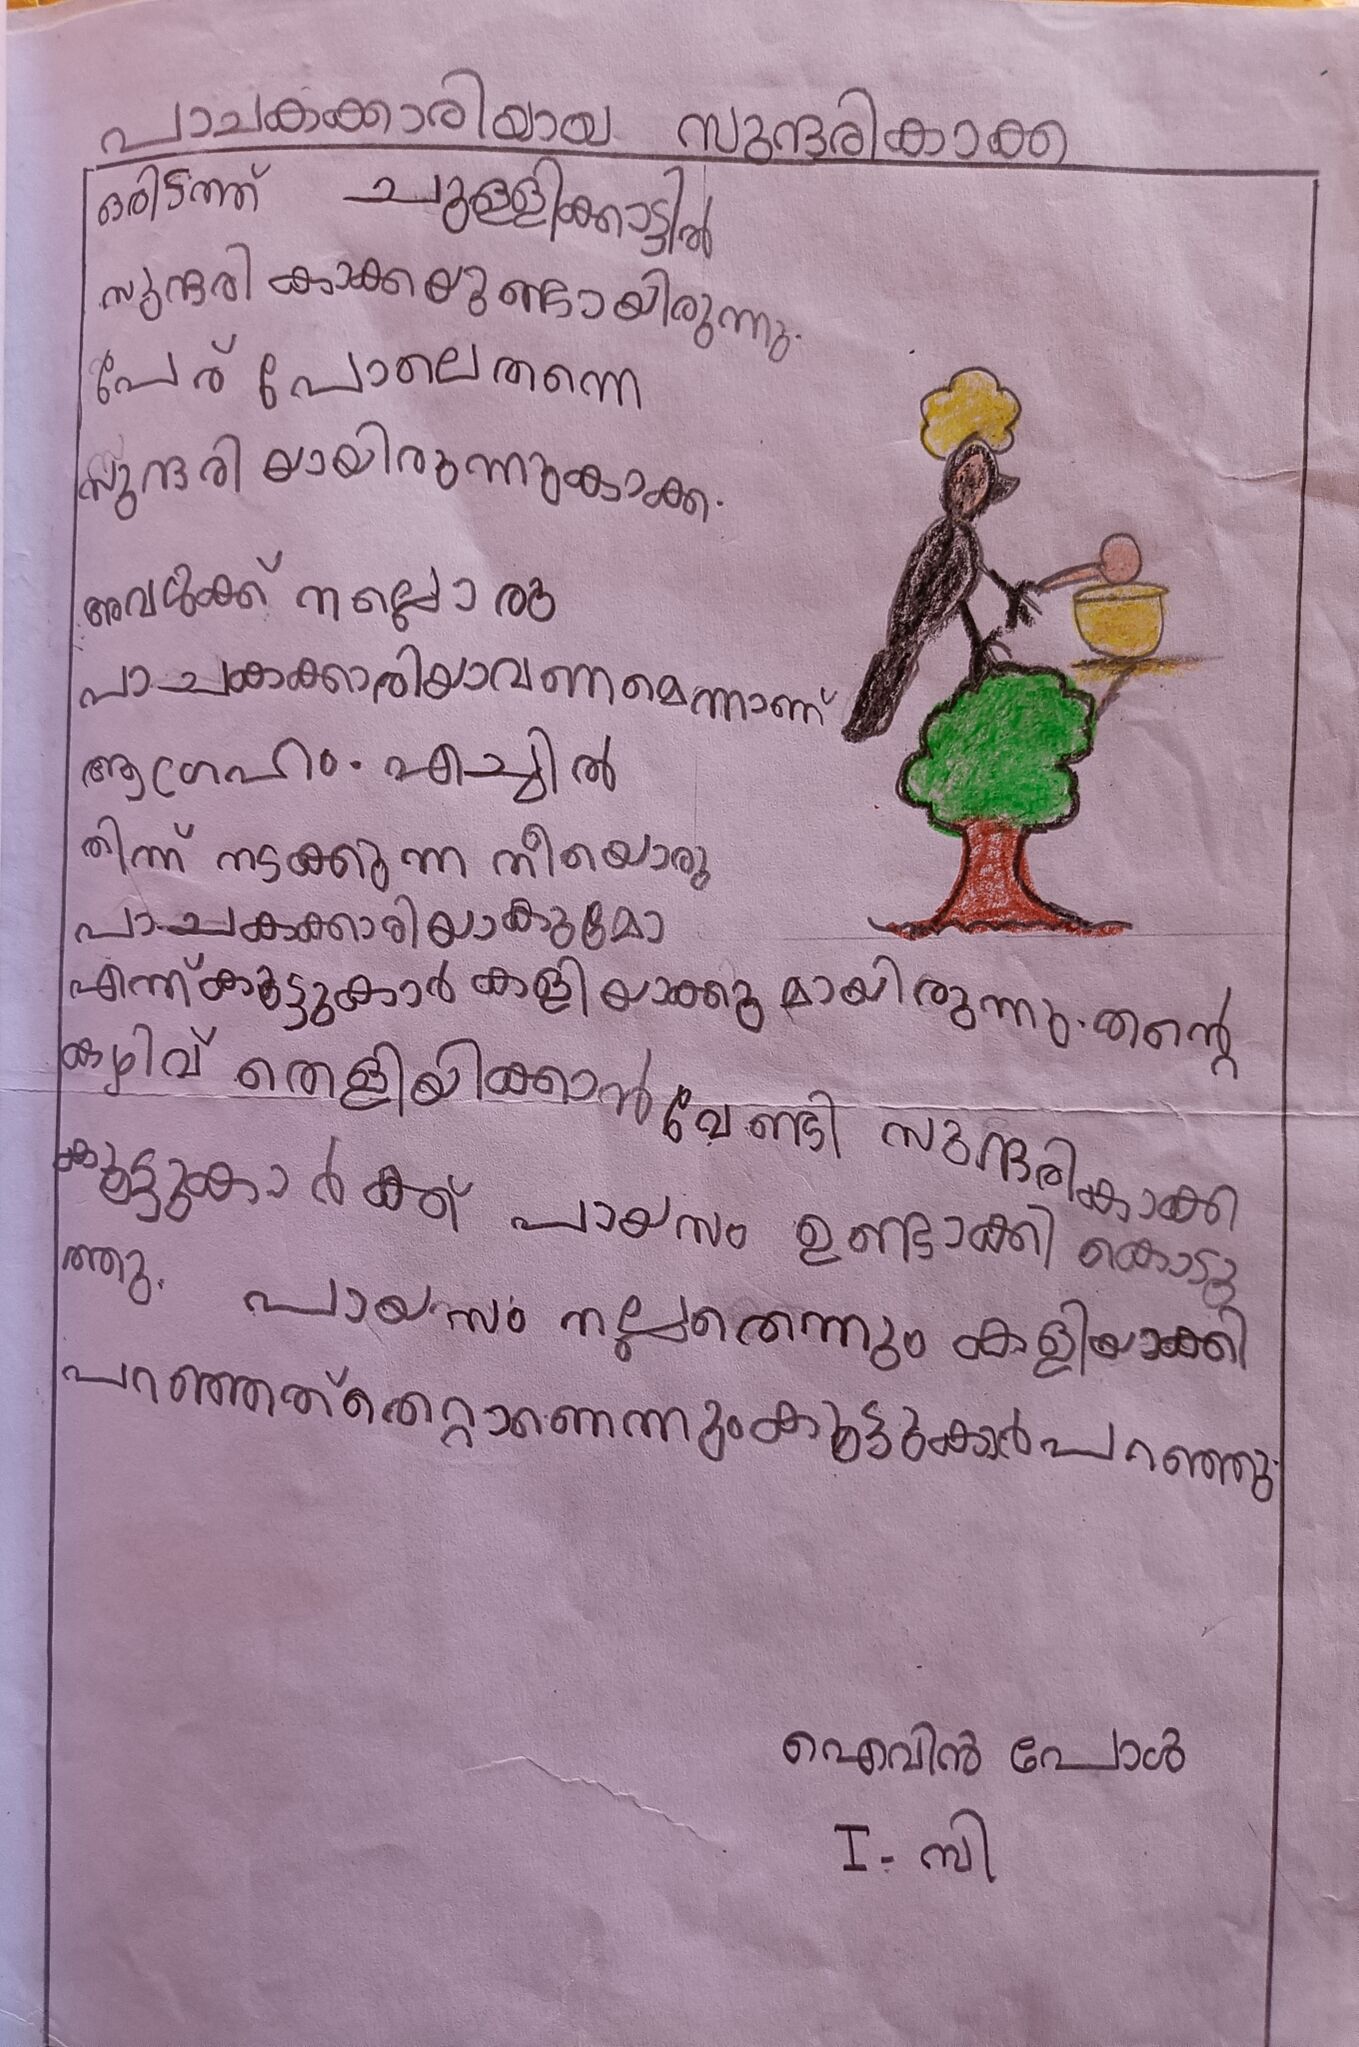 പാചകക്കാരിയായ സുന്ദരികാക്ക
ഒരിടത്ത് ചുള്ളിക്കാട്ടിൽ
സുന്ദരി കാക്കയുണ്ടായിരുന്നു.
പേര് പോലെ തന്നെ
സുന്ദരി യായിരുന്നു കാക്ക.
അവൾക്ക് നല്ലൊരു
പാചകക്കാരിയാവണമെന്നാണ്
ആഗ്രഹം. എച്ചിൽ
തിന്ന് നടക്കുന്ന നീയൊരു
പാചകക്കാരിയാകുമോ
എന്ന് കൂട്ടുകാർ കളിയാക്കുമായിരുന്നു. തന്റെ
കഴിവ് തെളിയിക്കാൻ വേണ്ടി സുന്ദരികാക്ക
കൂട്ടുകാർക്ക് പായസം ഉണ്ടാക്കി കൊടു
ത്തു. പായസം നല്ലതെന്നും കളിയാക്കി
പറഞ്ഞത് തെറ്റാണെന്നും കൂട്ടുകാർ പറഞ്ഞു.
ഐവിൻ പോൾ
I - സി